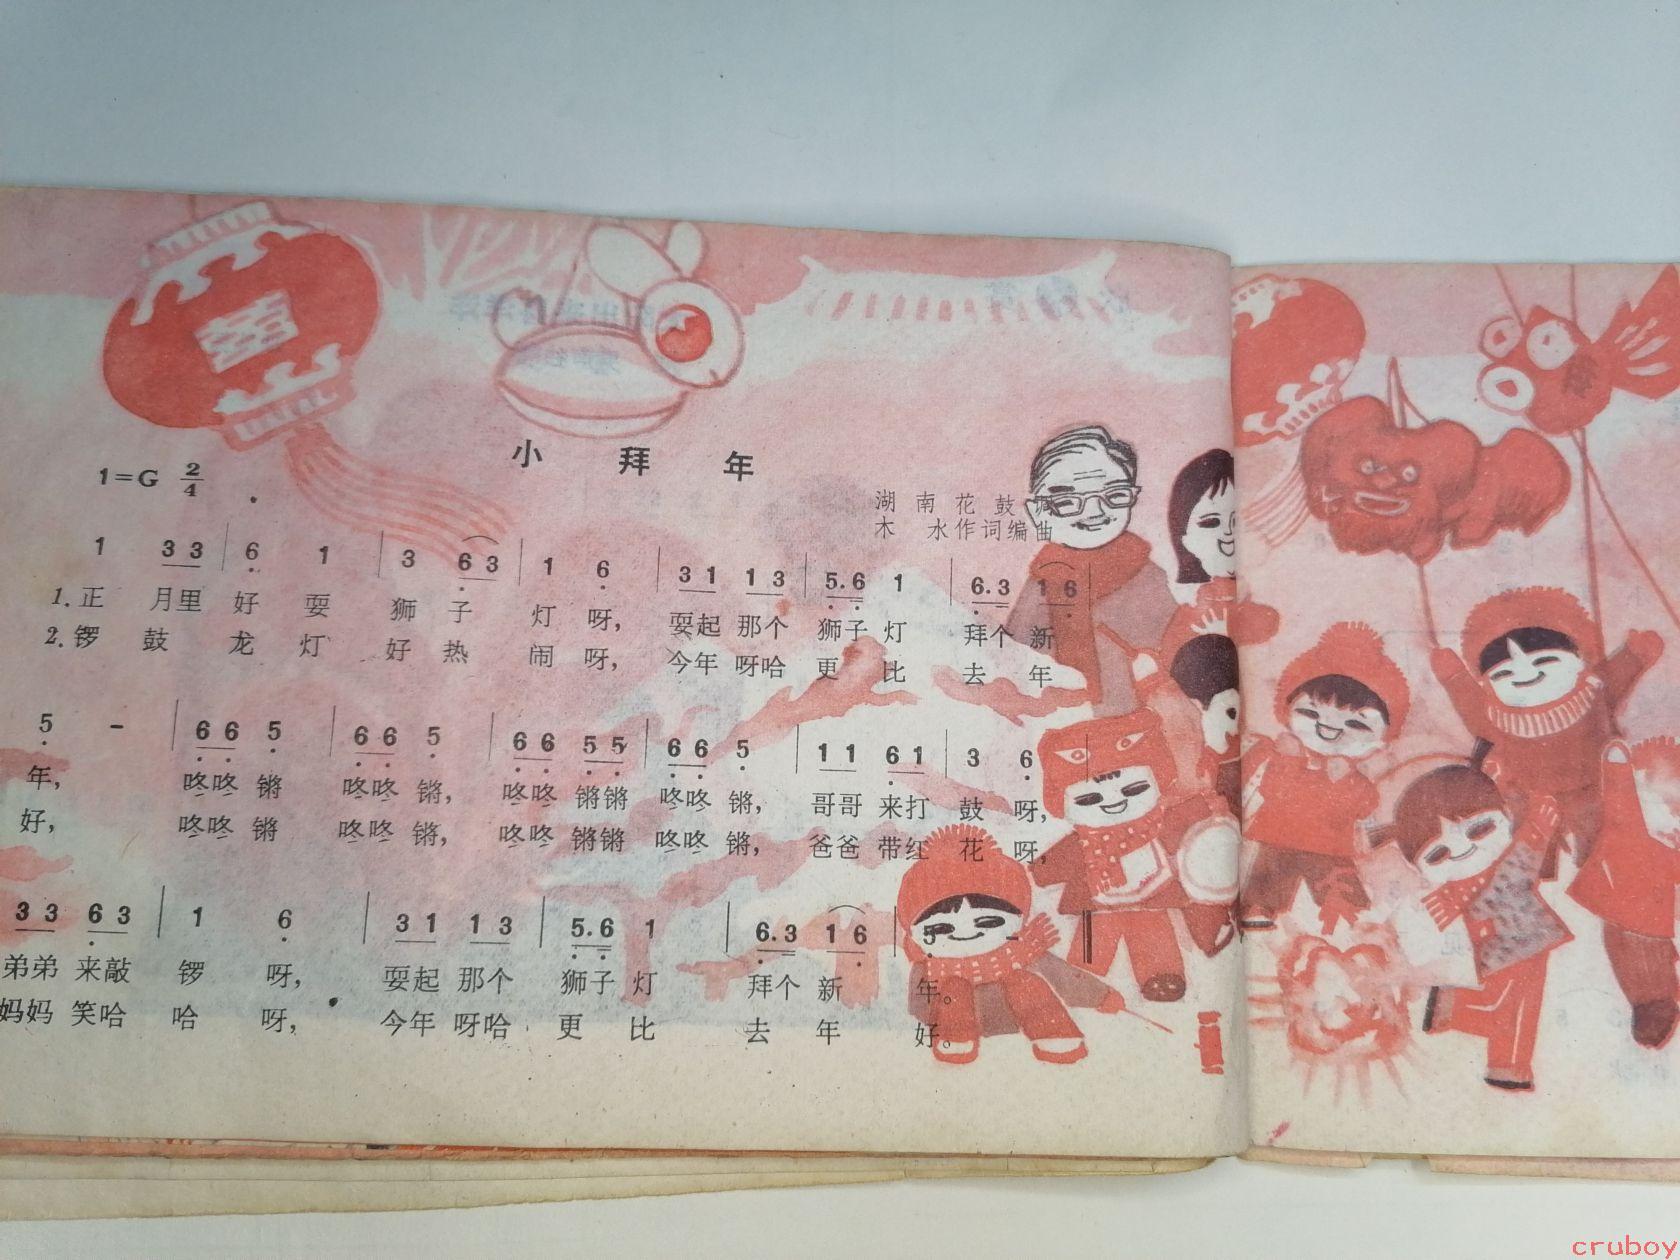 小拜年
1=G 2/4
湖南花鼓调
木水作词编曲
1 3 3 | 6 1 | 3 6 3 | 1 6 | 3 1 1 3 | 5. 6 1 | 6. 3 1 6 |
1. 正 月里 好 耍 狮 子 灯 呀, 耍起 那个 狮子 灯 拜个 新
2. 锣 鼓 龙 灯 好 热 闹 呀, 今年 呀哈 更 比 去 年
5 - | 6 6 5 | 6 6 5 | 6 6 5 5 | 6 6 5 | 1 1 6 1 | 3 6 |
年, 咚咚 锵 咚咚 锵, 咚咚 锵锵 咚咚 锵, 哥哥 来打 鼓 呀,
好, 咚咚 锵 咚咚 锵, 咚咚 锵锵 咚咚 锵, 爸爸 带红 花 呀,
3 3 6 3 | 1 6 | 3 1 1 3 | 5. 6 1 | 6. 3 1 6 | 5 - ‖
弟弟 来敲 锣 呀, 耍起 那个 狮子 灯 拜个 新 年。
妈妈 笑哈 哈 呀, 今年 呀哈 更 比 去 年 好。
cruboy